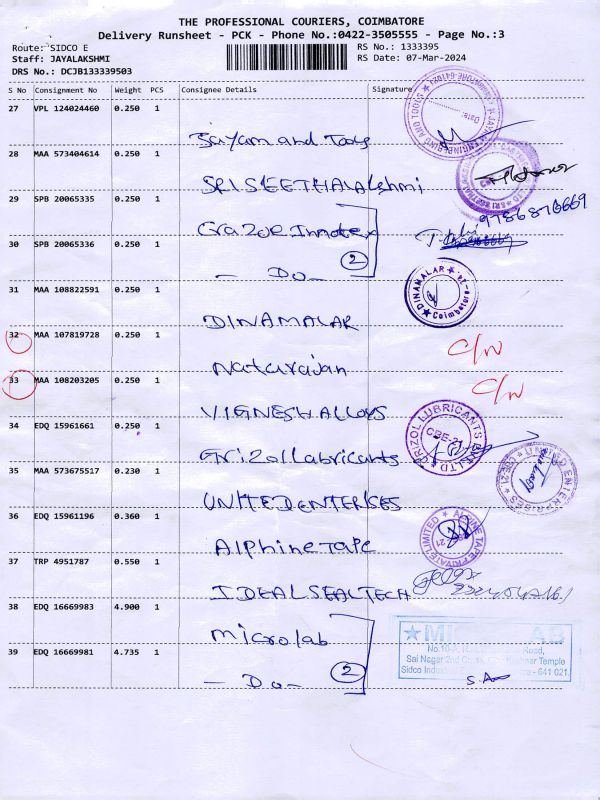 THE PROFESSIONAL COURIERS, COIMBATORE
Delivery Runsheet - PCK - Phone No.:0422-3505555 - Page No.:3
Route: SIDCO E
RS No.: 1333395
Staff: JAYALAKSHMI
RS Date: 07-Mar-2024
DRS No.: DCJB133339503
S No Consignment No Weight PCS Consignee Details Signature
27 VPL 124024460 0.250 1
and Tools
28 MAA 573404614 0.250 1
SRI SEETHALAkshmi
29 SPB 20065335 0.250 1
9786876669
30 SPB 20065336 0.250 1
- Do -
2
31 MAA 108822591 0.250 1
DINAMALAR
DINAMALAR
Coimbatore
32 MAA 107819728 0.250 1
Natarajan
C/N
33 MAA 108203205 0.250 1
VIGNESH ALLOYS
C/N
34 EDQ 15961661 0.250 1
Grizol Labricants
GRIZOL LUBRICANTS PVT LTD
CBE-21
35 MAA 573675517 0.230 1
UNITED ENTERISES
UNITED ENTERPRISES
36 EDQ 15961196 0.360 1
Alphine TAPE
ALPINE TAPE PRIVATE LIMITED
37 TRP 4951787 0.550 1
IDEAL SEAL TECH
38 EDQ 16669983 4.900 1
microlab
39 EDQ 16669981 4.735 1
- Do -
2
Road,
Sai Nagar 2nd Temple
Sidco - 641 021